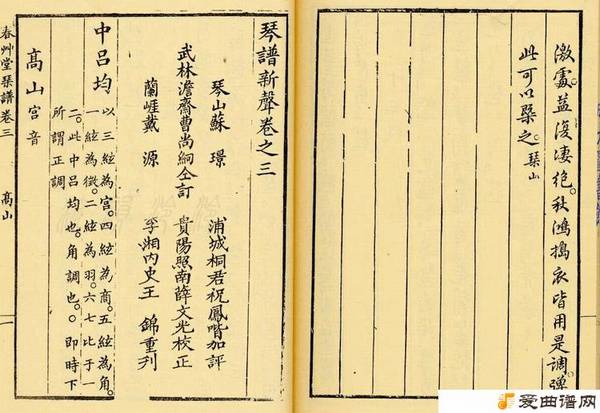 激處蓋淒絶秋鴻搗衣皆用是調彈
此可以槩之 琴山
琴譜新聲卷之三
琴山蘇璟 浦城桐君祝鳳喈加評
武林澹齋曹尚絅仝訂 貴陽照南薛文光校正
蘭崖戴源 孚湘内史王錦重列
中呂均 以三絃為宫。四絃為商。五絃為角。
一絃為徵。二絃為羽。六七比于一
二。此中呂均也。角調也。即時下
所謂正調
高山 宫音
春艸堂琴譜卷三 高山 一
爱曲谱网